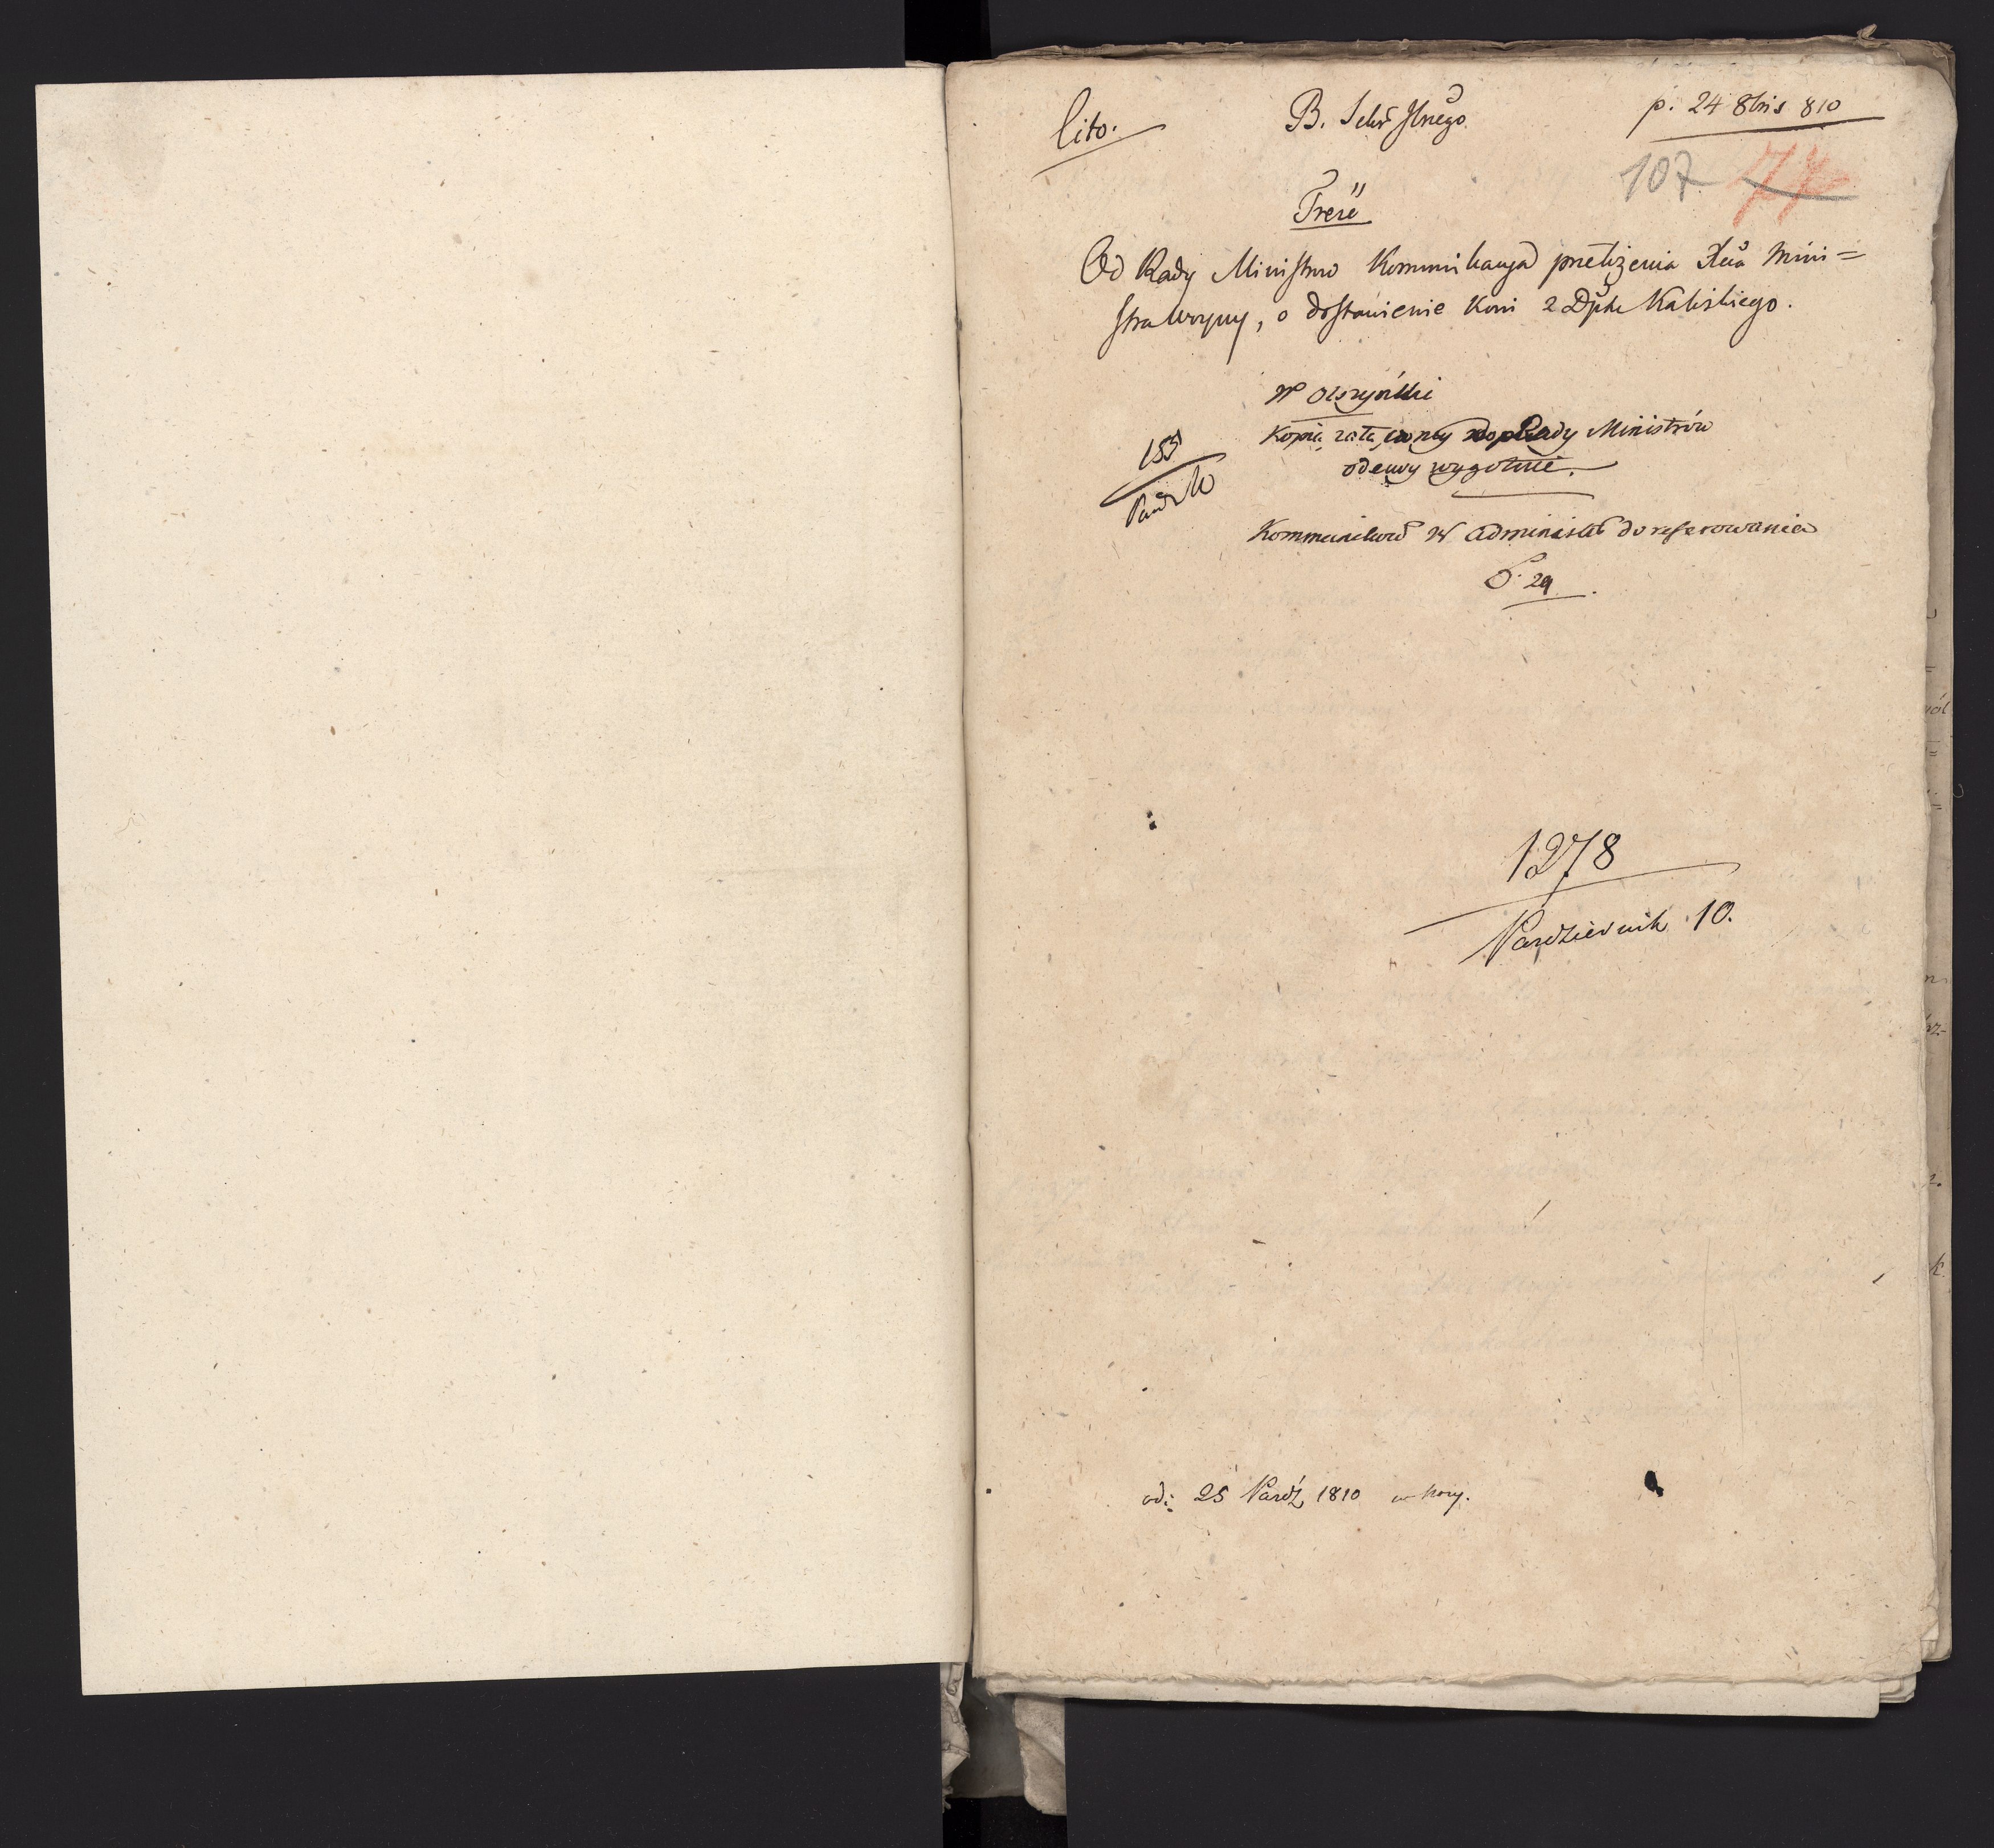 Cito.
B. Sekr Jlnego
p. 24 8bris 810
107 77
Treść
Od Rady Ministrów Kommunikacya przełożenia Xcia Mini=
stra Woyny, o dostawienie Koni z Dptu Kaliskiego.
W Olszyński
Kopią załączoney do Rady Ministrów
odezwy wygotuie.
155
Paźdz
Kommunikować W Administ do referowania
29
1278
Pazdziernik 10.
od: 25 Paźdź 1810